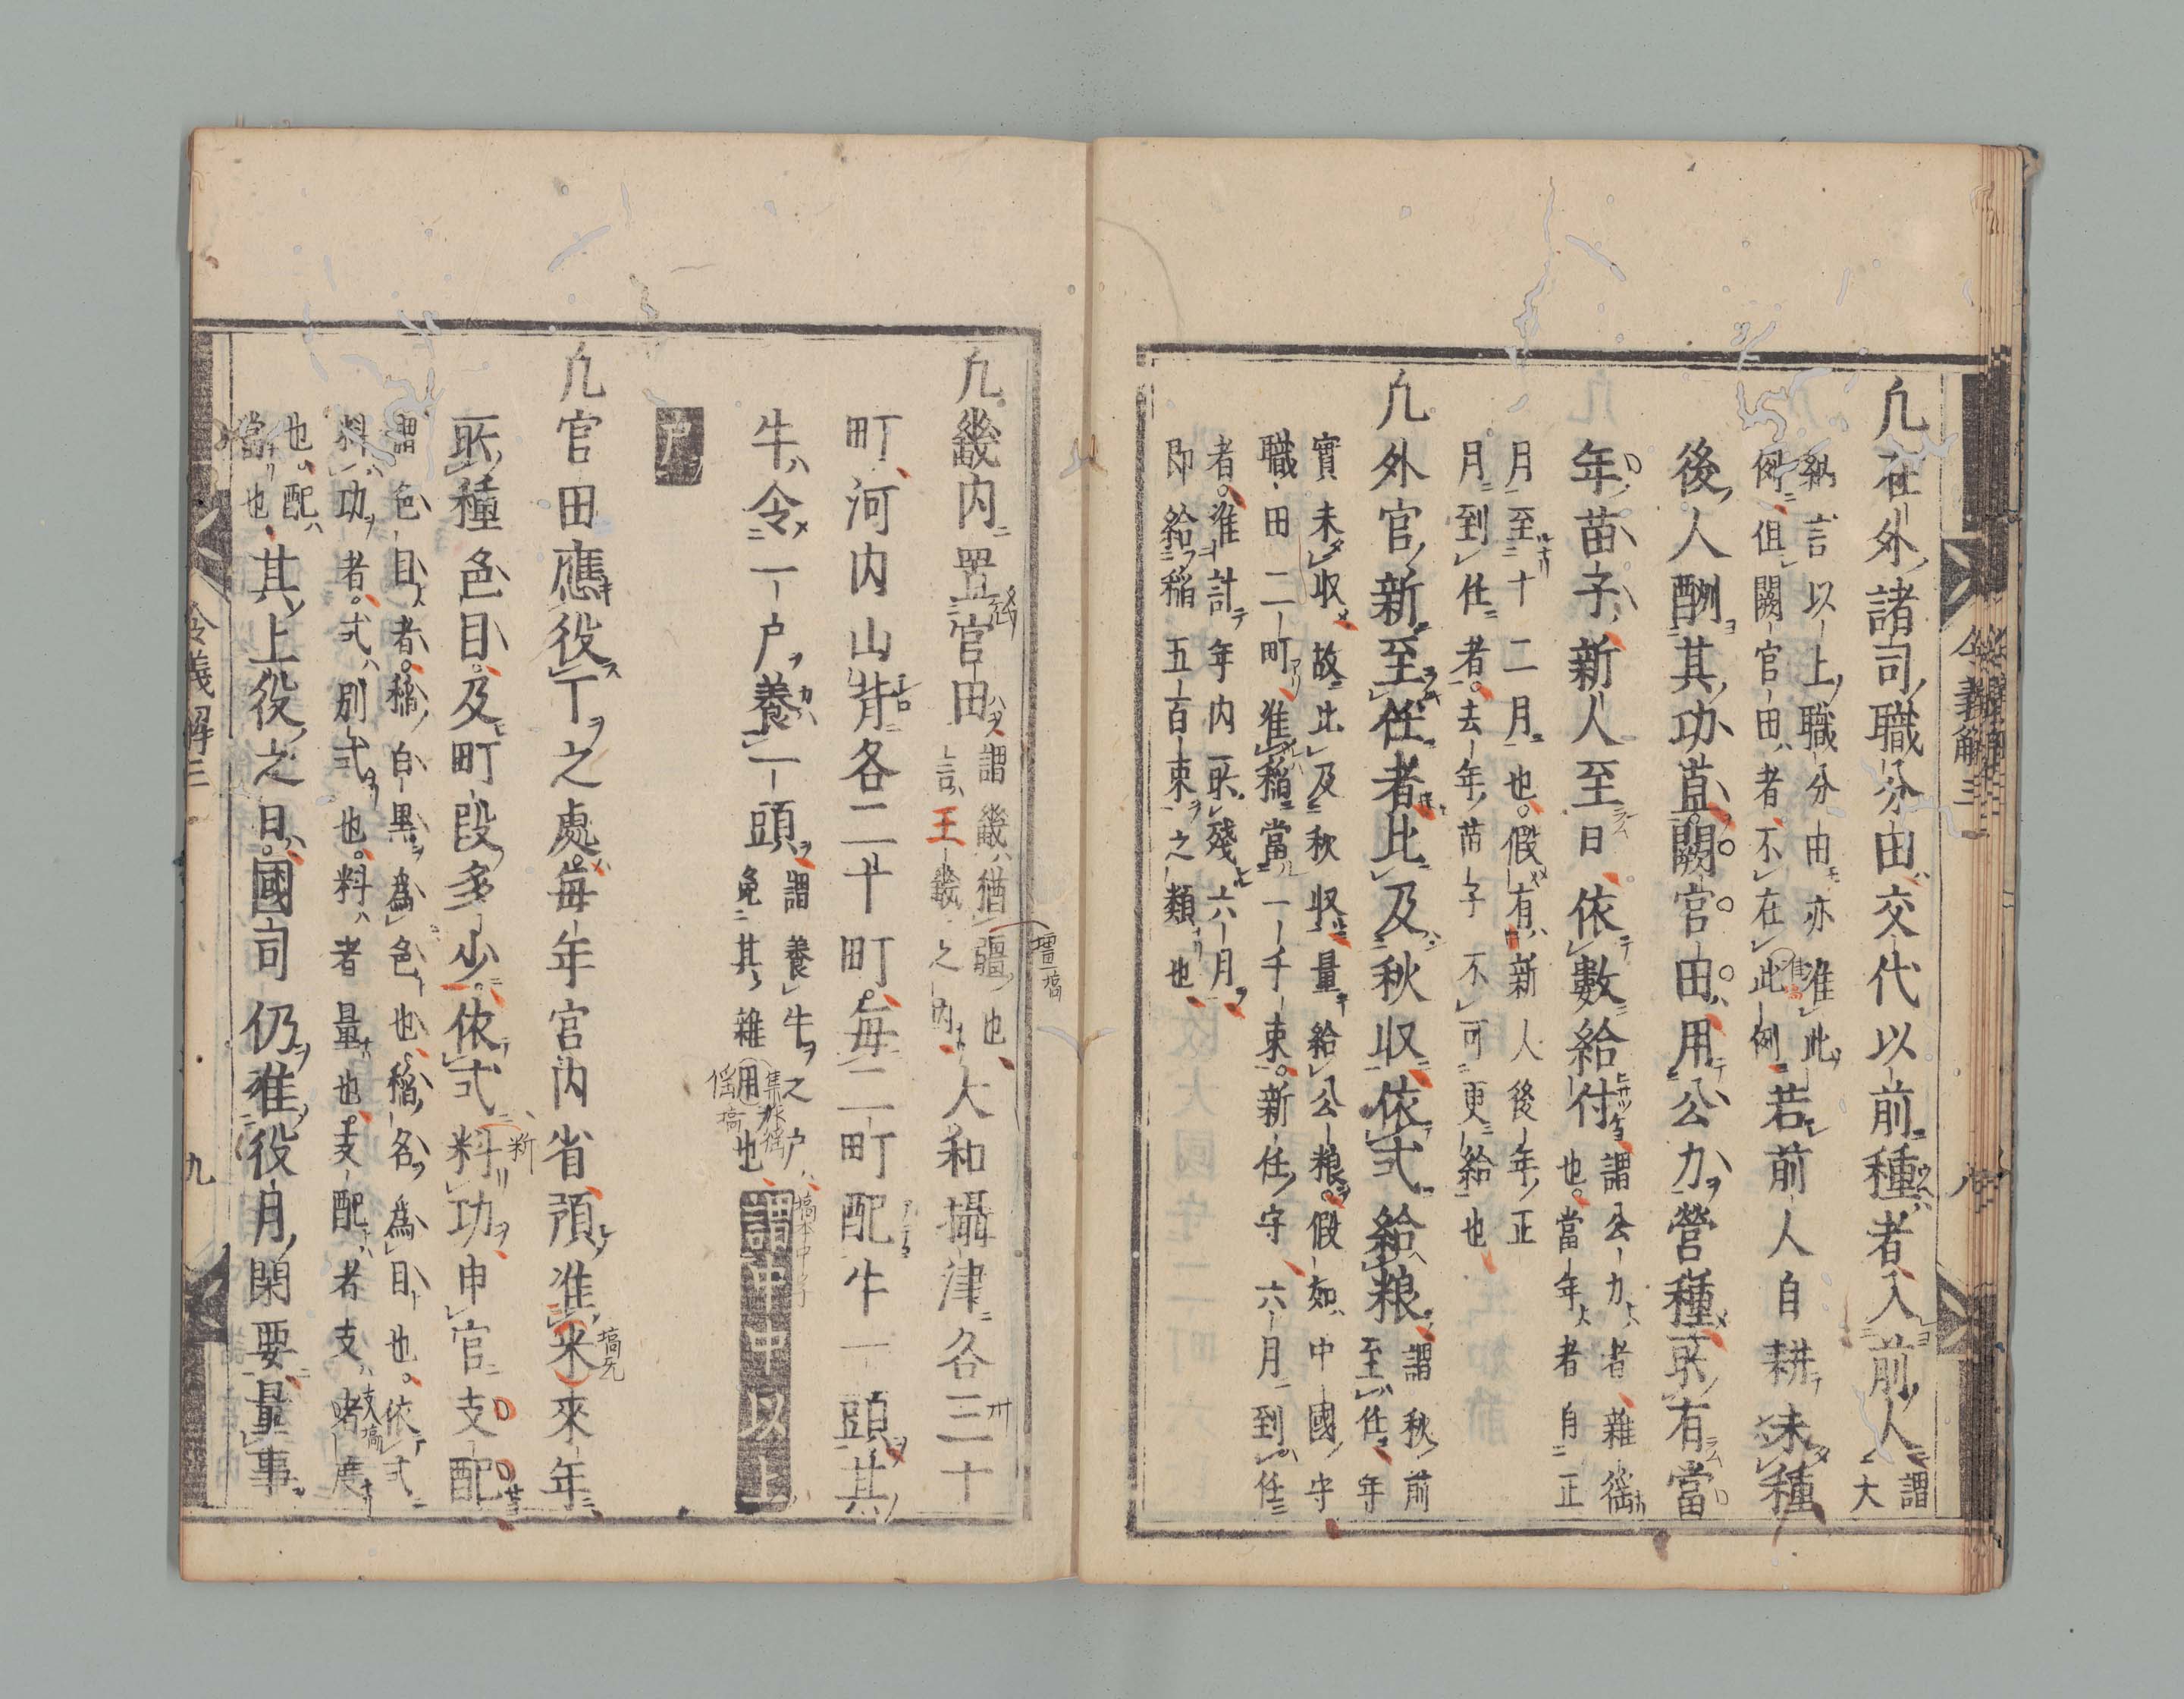 凢在外諸司職分由交代以前種者入前人謂大
納言以上職分由亦准此
例伹闕官田者不在此例若前人自耕未種
後人酬其功直闕官田用公力營種所有當
年苗子新人至日依數給付謂公力者雜徭也當年者自正
月至十二月也假有新人後年正
月到任者去年苗子不可更給也
凢外官新至任者比及秋収依式給粮謂秋前至任年
實未収故比及秋収量給公粮假如中國守
職田二町准稲當一千束新任守六月到任
者准計年内所殘六月
即給稲五百束之類也
令義解三
八
凢畿内置官田謂畿猶疆也言王畿之内大和攝津各三十
町河内山背各二十町毎二町配牛一頭其
牛令一戸養一頭謂養牛之戸免其雜用也謂中中以上
戸
凢官田應役丁之處毎年宮内省預准米來年
所種色目及町段多少依式料功申官支配
謂色目者稲白黒為色也稲名為目也依式
料功者式別式也料者量也支配者支度
也配當也其上役之日國司仍准役月閑要量事
令義解三
九